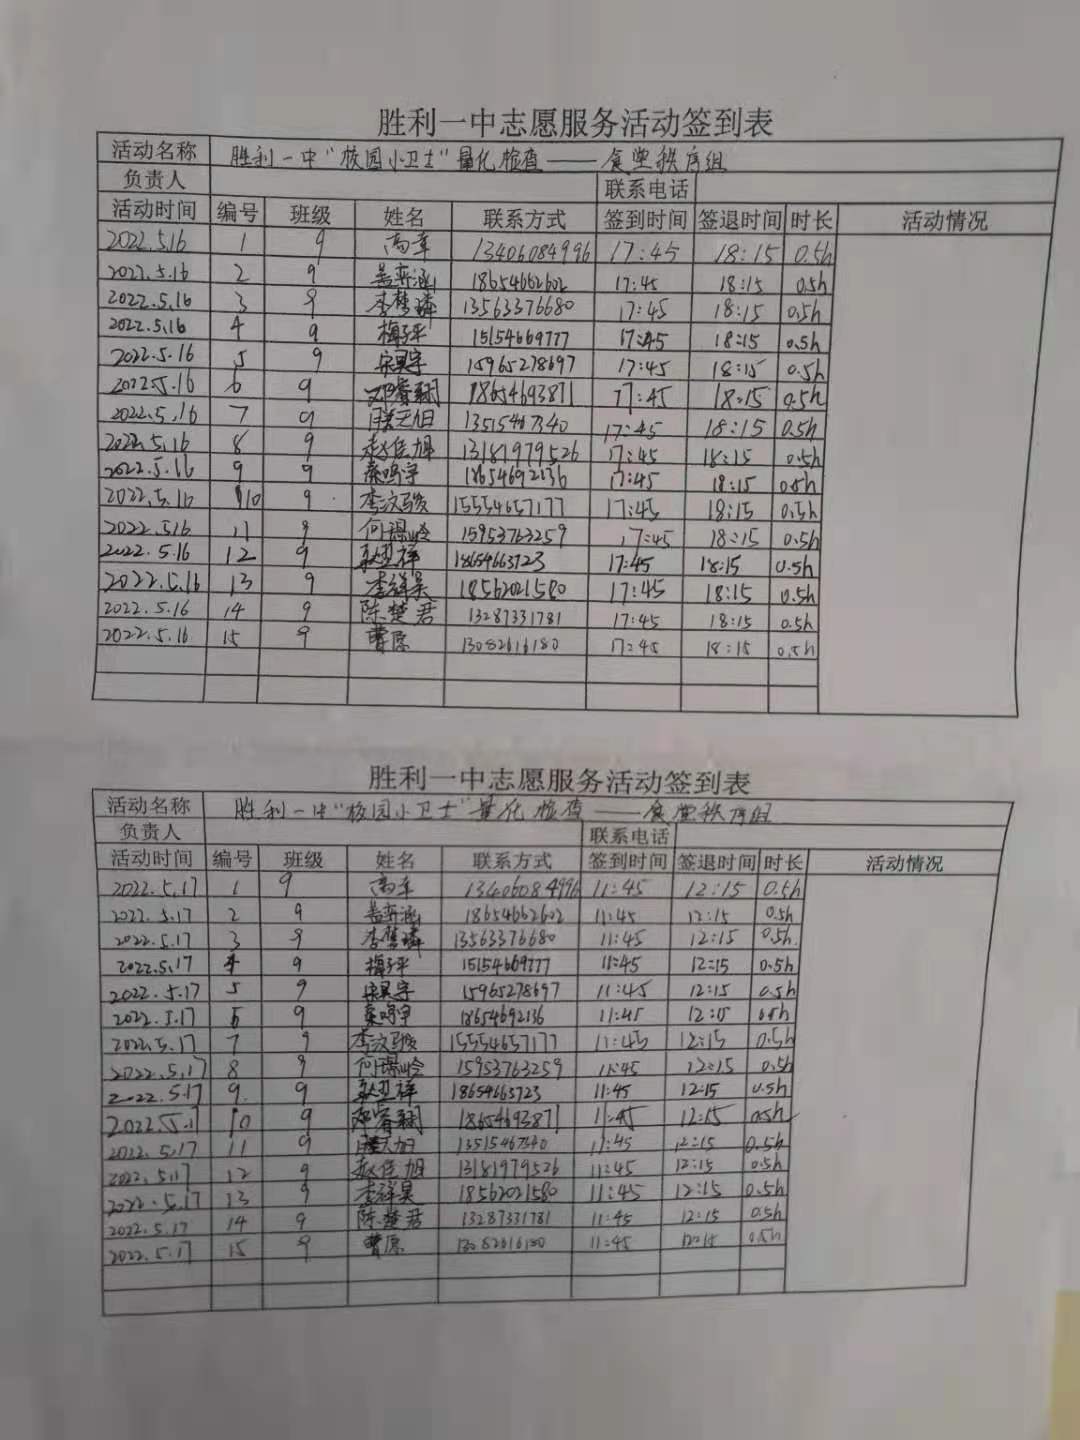 胜利一中志愿服务活动签到表
活动名称 胜利一中"校园小卫士"量化检查——食堂秩序组
负责人 联系电话
活动时间 编号 班级 姓名 联系方式 签到时间 签退时间 时长 活动情况
2022.5.16 1 9 13406084996 17:45 18:15 0.5h
2022.5.16 2 9 盖弈涵 18654662602 17:45 18:15 0.5h
2022.5.16 3 9 李梦璘 13563376680 17:45 18:15 0.5h
2022.5.16 4 9 梅子平 15154669777 17:45 18:15 0.5h
2022.5.16 5 9 宋昊宇 15965278697 17:45 18:15 0.5h
2022.5.16 6 9 邓睿翔 18654693871 17:45 18:15 0.5h
2022.5.16 7 9 滕天旭 13515467340 17:45 18:15 0.5h
2022.5.16 8 9 赵佳旭 13181979526 17:45 18:15 0.5h
2022.5.16 9 9 秦鸣宇 18654692136 17:45 18:15 0.5h
2022.5.16 10 9 李汶骏 15554657177 17:45 18:15 0.5h
2022.516 11 9 何 15953763259 17:45 18:15 0.5h
2022.5.16 12 9 18654663723 17:45 18:15 0.5h
2022.5.16 13 9 李祥昊 18562021580 17:45 18:15 0.5h
2022.5.16 14 9 陈楚君 13287331781 17:45 18:15 0.5h
2022.5.16 15 9 曹原 13082616180 17:45 18:15 0.5h
胜利一中志愿服务活动签到表
活动名称 胜利一中"校园小卫士"量化检查——食堂秩序组
负责人 联系电话
活动时间 编号 班级 姓名 联系方式 签到时间 签退时间 时长 活动情况
2022.5.17 1 9 13406084996 11:45 12:15 0.5h
2022.5.17 2 9 盖弈涵 18654662602 11:45 12:15 0.5h
2022.5.17 3 9 李梦璘 13563376680 11:45 12:15 0.5h
2022.5.17 4 9 梅子平 15154669777 11:45 12:15 0.5h
2022.5.17 5 9 宋昊宇 15965278697 11:45 12:15 0.5h
2022.5.17 6 9 秦鸣宇 18654692136 11:45 12:15 0.5h
2022.5.17 7 9 李汶骏 15554657177 11:45 12:15 0.5h
2022.5.17 8 9 何 15953763259 11:45 12:15 0.5h
2022.5.17 9 9 18654663723 11:45 12:15 0.5h
2022.5.17 10 9 邓睿翔 18654693871 11:45 12:15 0.5h
2022.5.17 11 9 滕天旭 13515467340 11:45 12:15 0.5h
2022.5.17 12 9 赵佳旭 13181979526 11:45 12:15 0.5h
2022.5.17 13 9 李祥昊 18562021580 11:45 12:15 0.5h
2022.5.17 14 9 陈楚君 13287331781 11:45 12:15 0.5h
2022.5.17 15 9 曹原 13082616180 11:45 12:15 0.5h